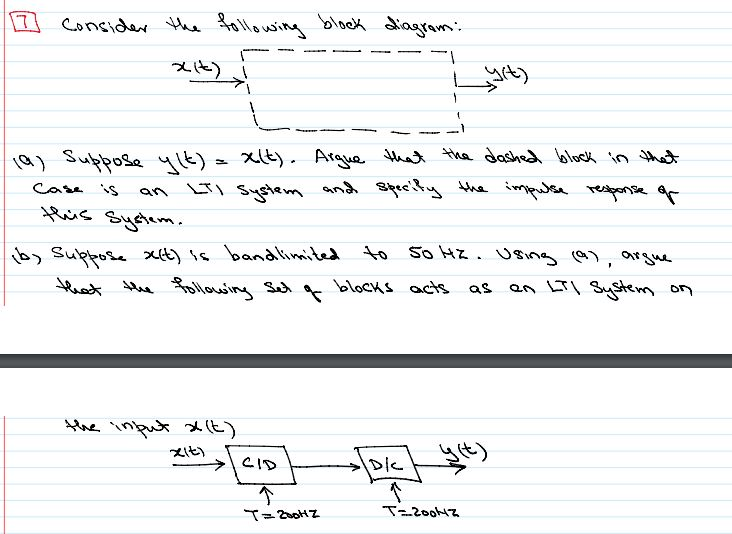 7 Consider the following block diagram:
x(t) y(t)
(a) Suppose y(t) = x(t). Argue that the dashed block in that
case is an LTI system and specify the impulse response of
this system.
(b) Suppose x(t) is bandlimited to 50 HZ. Using (a), argue
that the following set of blocks acts as an LTI system on
the input x(t)
x(t) C/D D/C y(t)
T=200HZ T=200HZ